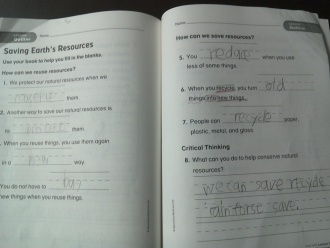 Saving Earth's Resources
Use your book to help you fill in the blanks.
How can we reuse resources?
1. We protect our natural resources when we
them.
2. Another way to save our natural resources is
to them.
When you reuse things, you use them again
in a new way.
You do not have to buy
new things when you reuse things.
Name
How can we save resources?
5. You reduce when you use
less of some things.
6. When you recycle, you turn old
things into new things.
7. People can recycle paper,
plastic, metal, and glass.
Critical Thinking
8. What can you do to help conserve natural
resources?
we can save recycle
rainforst save.